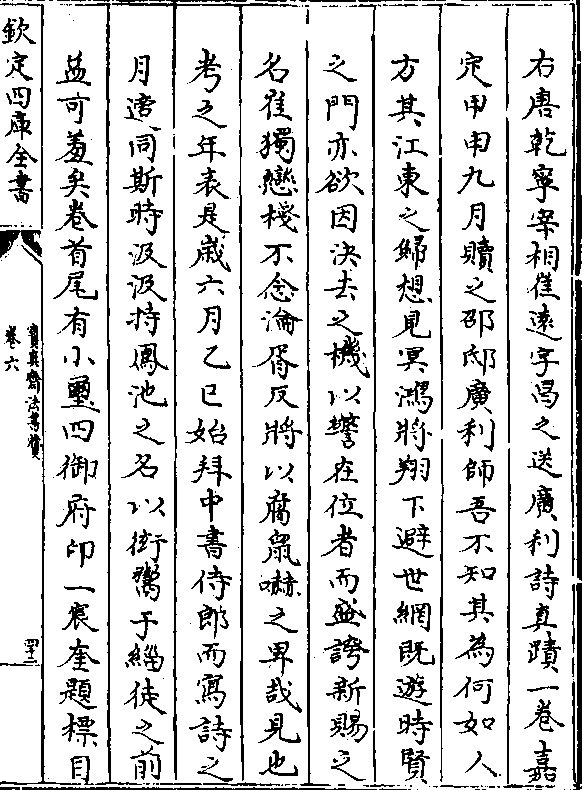 右唐乾寧宰相崔遠字昌之送廣利詩真蹟一卷嘉
定甲申九月贖之邵邸廣利師吾不知其為何如人
方其江東之歸想見冥鴻將翔下避世網既遊時賢
之門亦欲因決去之機以警在位者而盛誇新賜之
名崔獨戀棧不念淪胥反將以腐䑕嚇之畀哉見也
考之年表是歲六月乙巳始拜中書侍郎而寫詩之
月適同斯時汲汲持鳳池之名以衒鬻于緇徒之前
益可羞矣卷首尾有小璽四御府印一宸奎題標目
欽定四庫全書
寶真齋法書贊
卷六
四十二